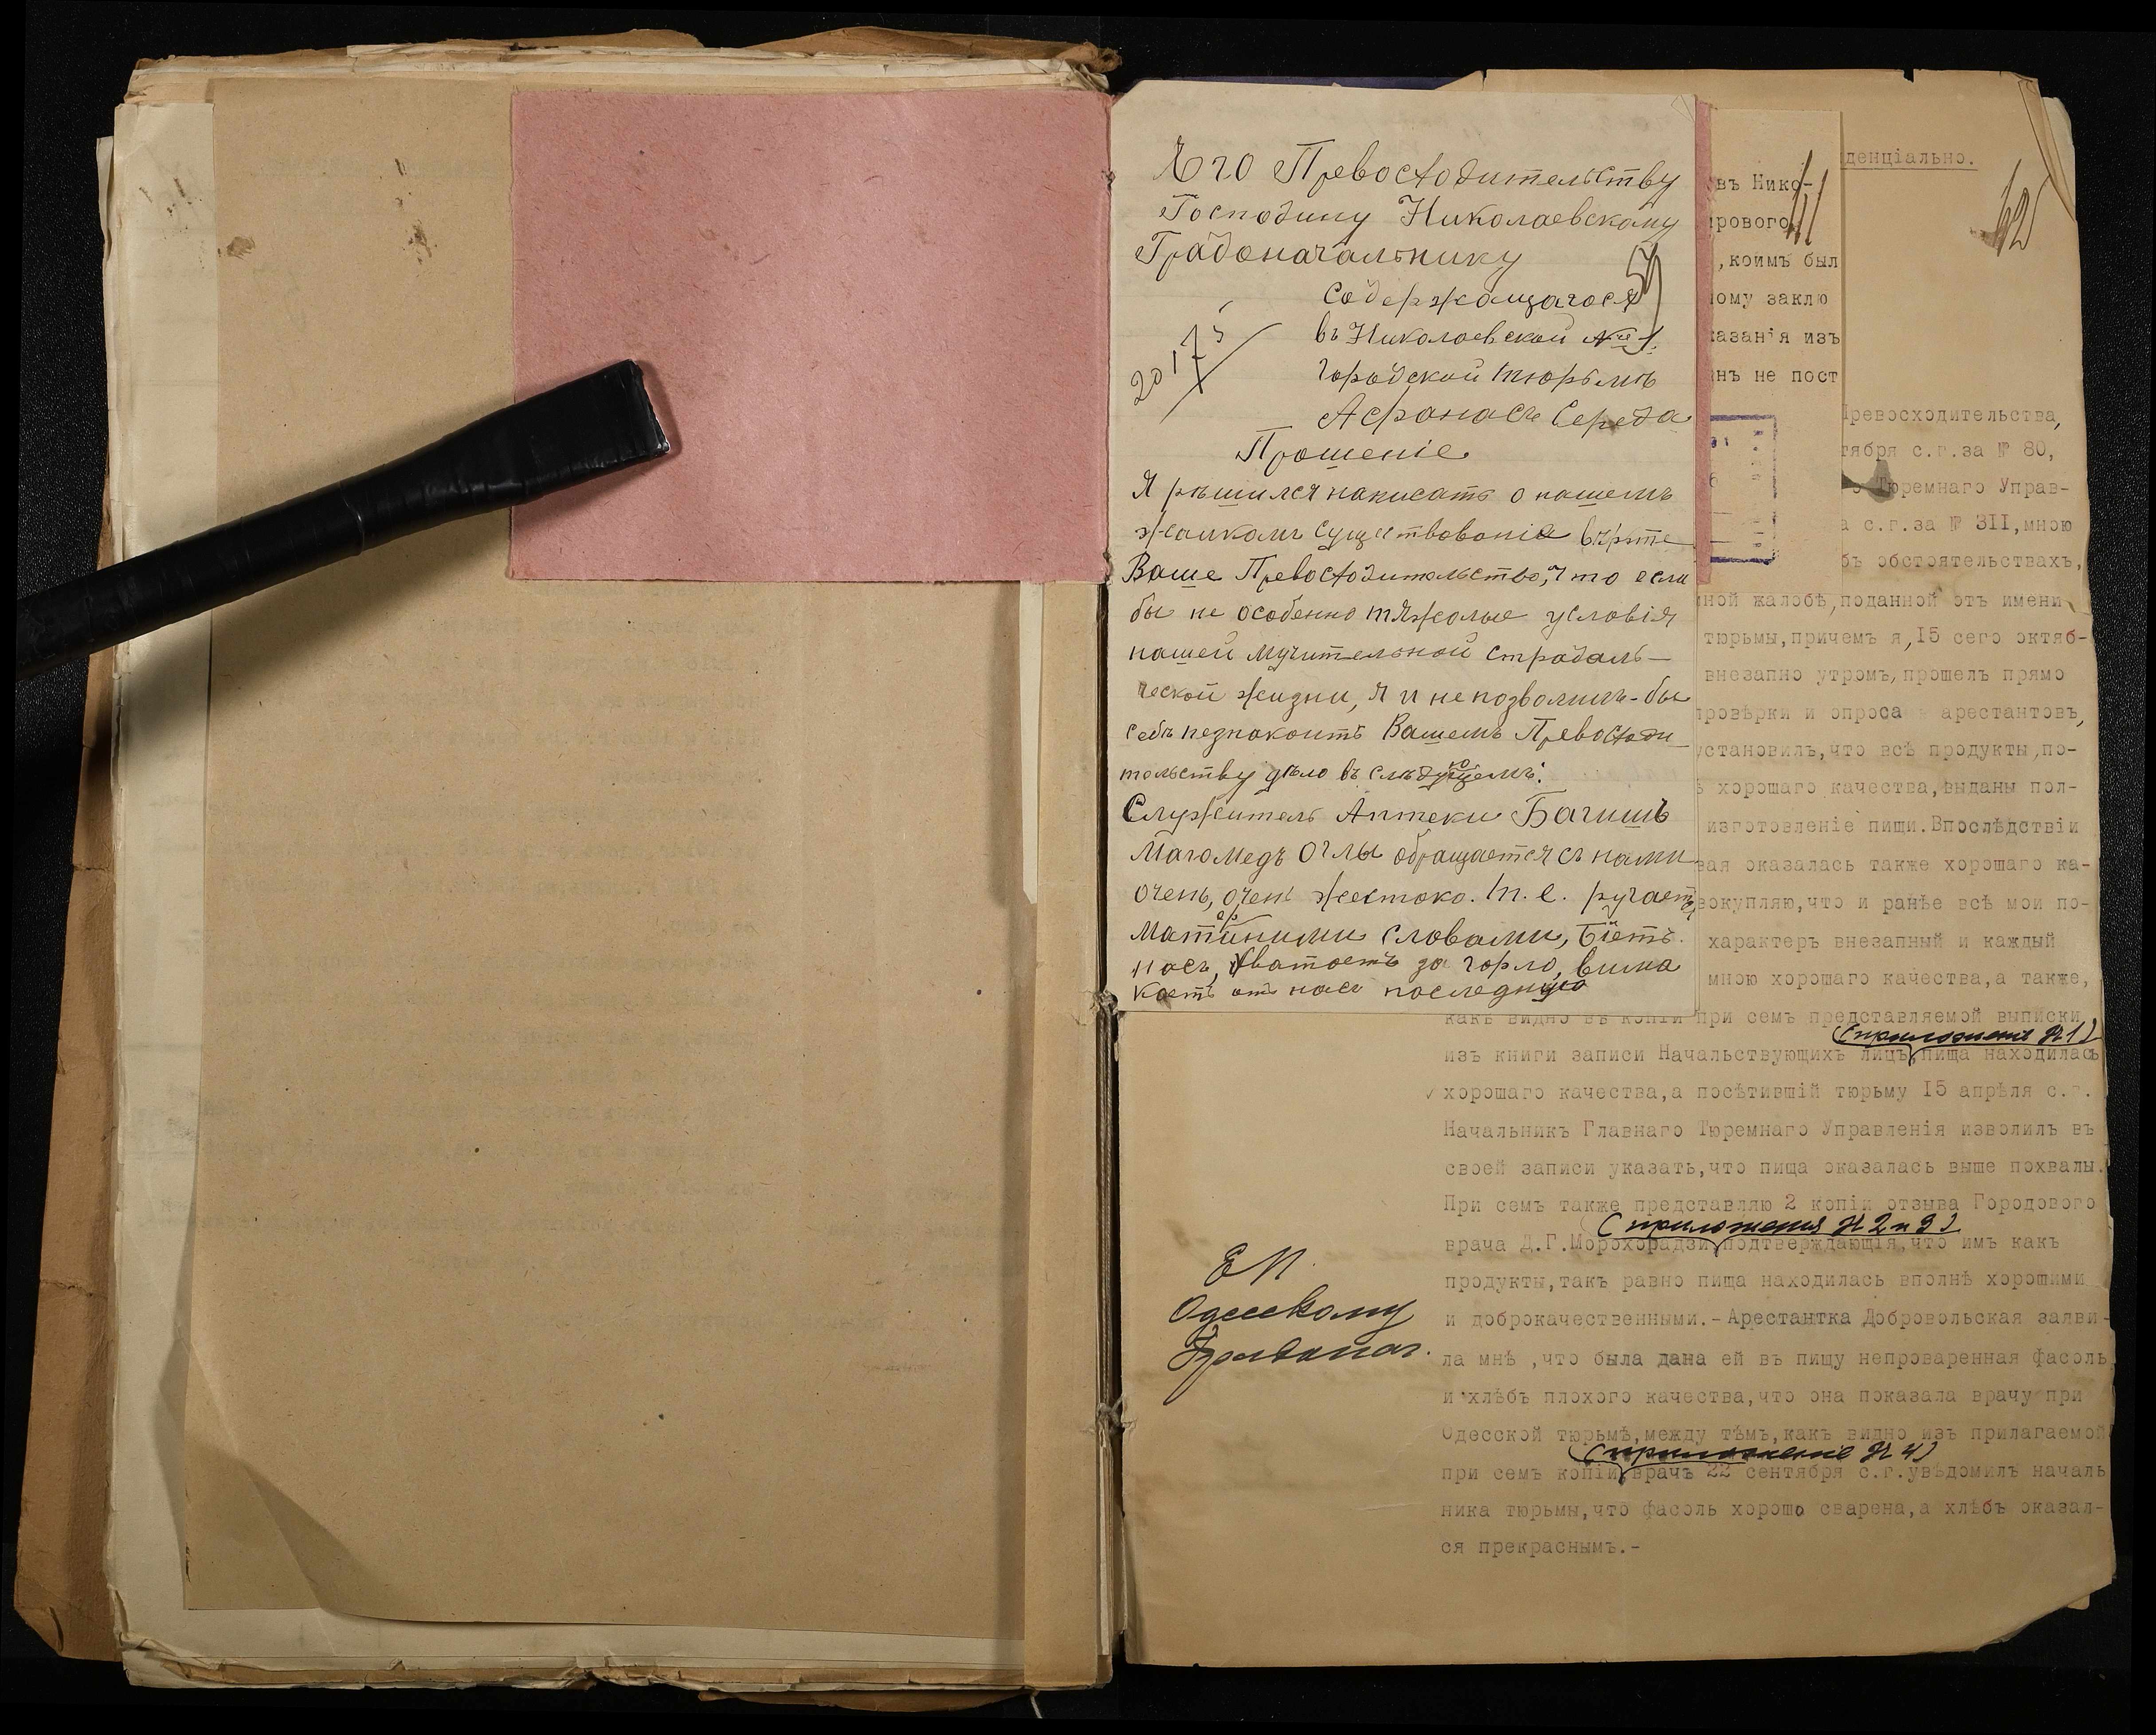 Его Превосходительству
Господину Николаевскому
Градоначальнику
59
содержащагося
въ Николаевской №1
городской тюрьмѣ
Афанасъ Середа
20 175
Прошеніе
Я рѣшился написать о нашемъ
жалкомъ существованіе вѣрте
Ваше Превосходительство, что если
бы не особенно тяжолые условія
нашей мучительной страдаль-
ческой жизни, я и не позволилъ-бы
себѣ Вашемъ Превосходи-
тельству дѣло въ слѣдующемъ:
Служитель Аптеки Багишъ
Магомедъ Оглы обращается съ нами
очень, очень жестоко. т. е. ругаетъ
матерними словами, бьетъ
насъ, хватаетъ за горло, вима
каетъ отъ насъ последнюю
въ Нико-
ирового
111
,коимъ был
ому заклю
казанія изъ
нъ не пост
денціально.
62
Превосходительства,
тября с.г.за № 80,
о Тюремнаго Управ-
а с.г.за № 311,мною
бъ обстоятельствахъ,
ной жалобѣ,поданной отъ имени
тюрьмы,причемъ я,15 сего октяб-
внезапно утромъ,прошелъ прямо
провѣрки и опроса арестантовъ,
установилъ,что всѣ продукты,по-
ъ хорошаго качества,выданы пол-
изготовленіе пищи.Впослѣдствіи
вая оказалась также хорошаго ка-
вокупляю,что и ранѣе всѣ мои по-
характеръ внезапный и каждый
мною хорошаго качества,а также,
какъ видно въ копіи при семъ представляемой выписки
(приложеніе № 1)
изъ книги записи Начальствующихъ лицъ,пища находилась
хорошаго качества,а посѣтившій тюрьму 15 апрѣля с.г.
Начальникъ Главнаго Тюремнаго Управленія изволилъ въ
своей записи указать,что пища оказалась выше похвалы.
При семъ также представляю 2 копіи отзыва Городового
(приложенія № 2 и 3)
врача Д.Г.Морохорадзи,подтверждающія,что имъ какъ
продукты,такъ равно пища находилась вполнѣ хорошими
и доброкачественными.-Арестантка Добровольская заяви-
ла мнѣ ,что была дана ей въ пищу непроваренная фасоль
и хлѣбъ плохого качества,что она показала врачу при
Одесской тюрьмѣ,между тѣмъ,какъ видно изъ прилагаемой
(приложеніе № 4)
при семъ копіи,врачъ 22 сентября с.г.увѣдомилъ началь
ника тюрьмы,что фасоль хорошо сварена,а хлѣбъ оказал-
ся прекраснымъ.-
ЕП.
Одесскому
Градонач.